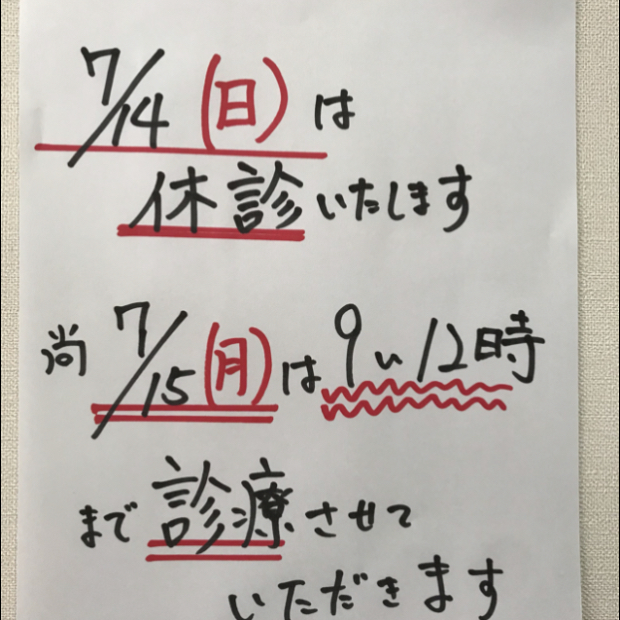 7/14(日)は
休診いたします
尚7/15(月)は9〜12時
まで診療させて
いただきます